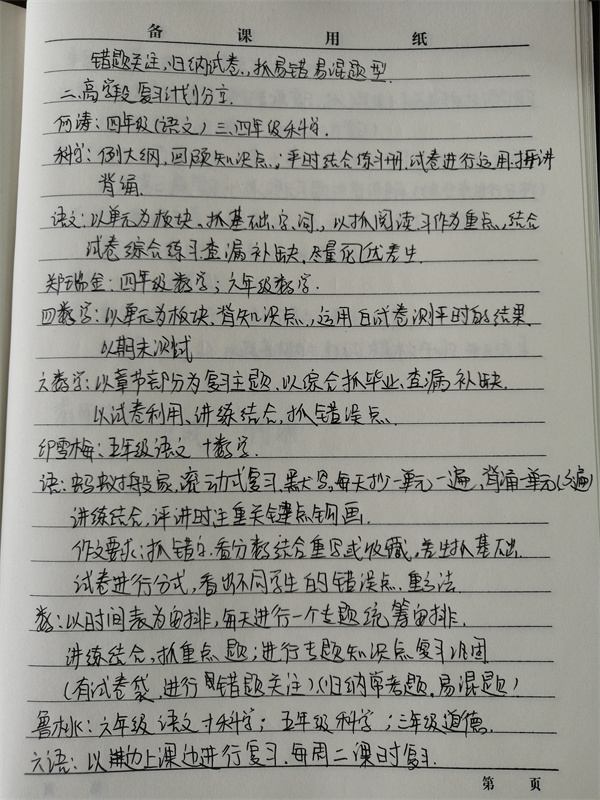 备课用纸
错题关注,归纳试卷,抓易错易混题型.
二、高学段复习计划分享.
何涛:四年级(语文)三、四年级科学.
科学:例大纲,回顾知识点;平时结合练习册,试卷进行运用.抽讲
背诵.
语文:以单元为板块,抓基础、字、词,以抓阅读、习作为重点,结合
试卷综合练习查漏补缺,尽量
郑瑞金:四年级数学;六年级数学.
四数学:以单元为板块,背知识点,运用自试卷测平时的结果.
以期末测试
六数学:以章节部分为复习主题,以综合抓毕业,查漏补缺.
以试卷利用、讲练结合,抓错误点.
印雪梅:五年级语文十数学.
语:蚂蚁搬家,流动式复习,每天抄一单元一遍,背诵一单元(3遍)
讲练结合,评讲时注重关键点钩画.
作文要求:抓错白,看分数结合重写或收藏,差生抓基础.
试卷进行分式,看出不同学生的错误点.
数:以时间表为安排,每天进行一个专题统筹安排.
讲练结合,抓重点题;进行专题知识点复习巩固
(有试卷袋,进行错题关注)(归纳常考题,易混题)
鲁木水:六年级语文十科学;五年级科学;三年级道德.
六语:以边上课边进行复习.每周二课时复习.
第 页